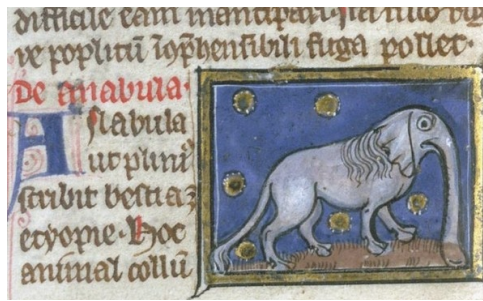 difficile eam mancipari. Ita nullo
ve poplitū īcōp̄hensibili fuga pollet.
De anabula.
Anabula
ut plini⁹
scribit bestia ꝫ
etyopie. Hoc
animal collū